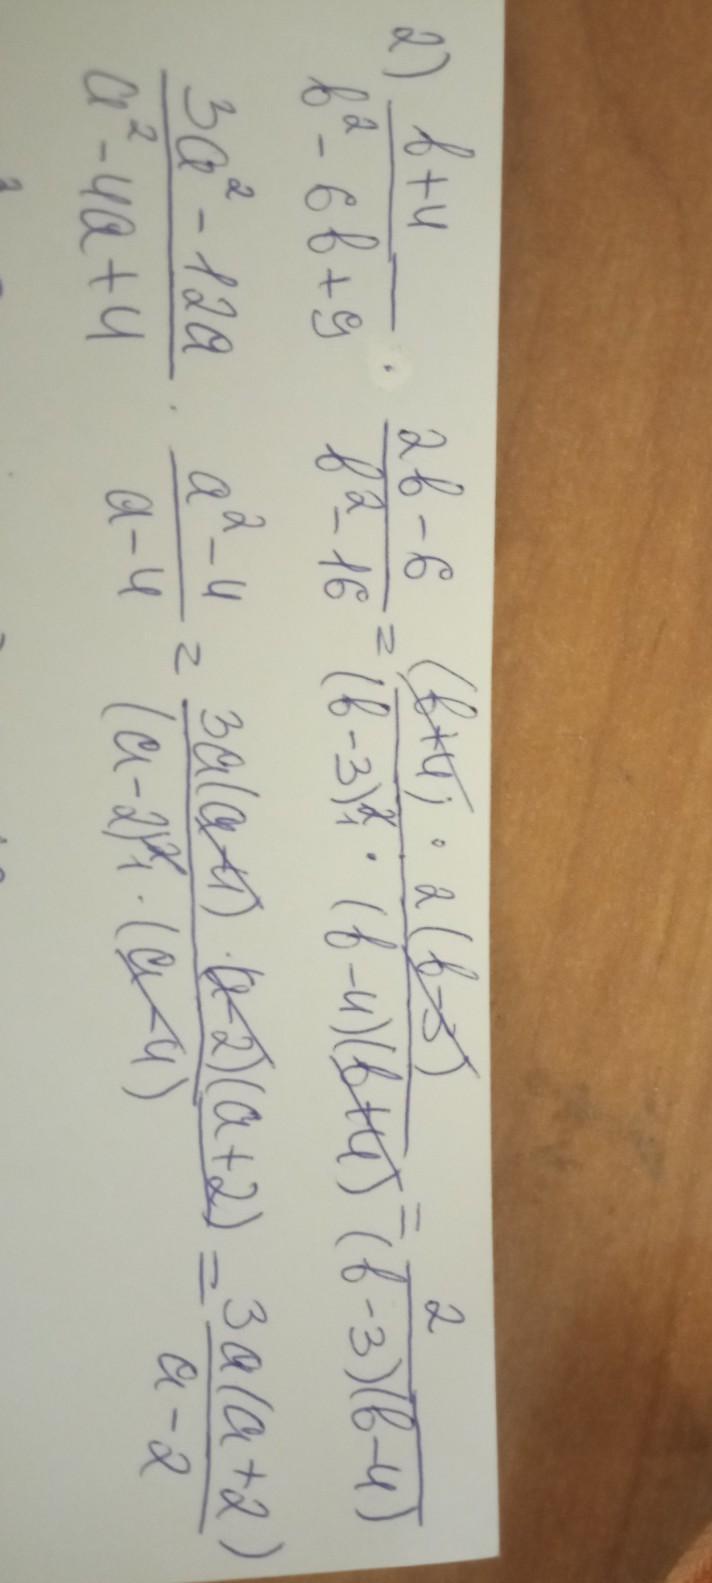 2) \frac{b+4}{b^2-6b+9} \cdot \frac{2b-6}{b^2-16} = \frac{(b+4) \cdot 2(b-3)}{(b-3)^2_1 \cdot (b-4)(b+4)} = \frac{2}{(b-3)(b-4)}
\frac{3a^2-12a}{a^2-4a+4} \cdot \frac{a^2-4}{a-4} = \frac{3a(a-4) \cdot (a-2)(a+2)}{(a-2)^2_1 \cdot (a-4)} = \frac{3a(a+2)}{a-2}